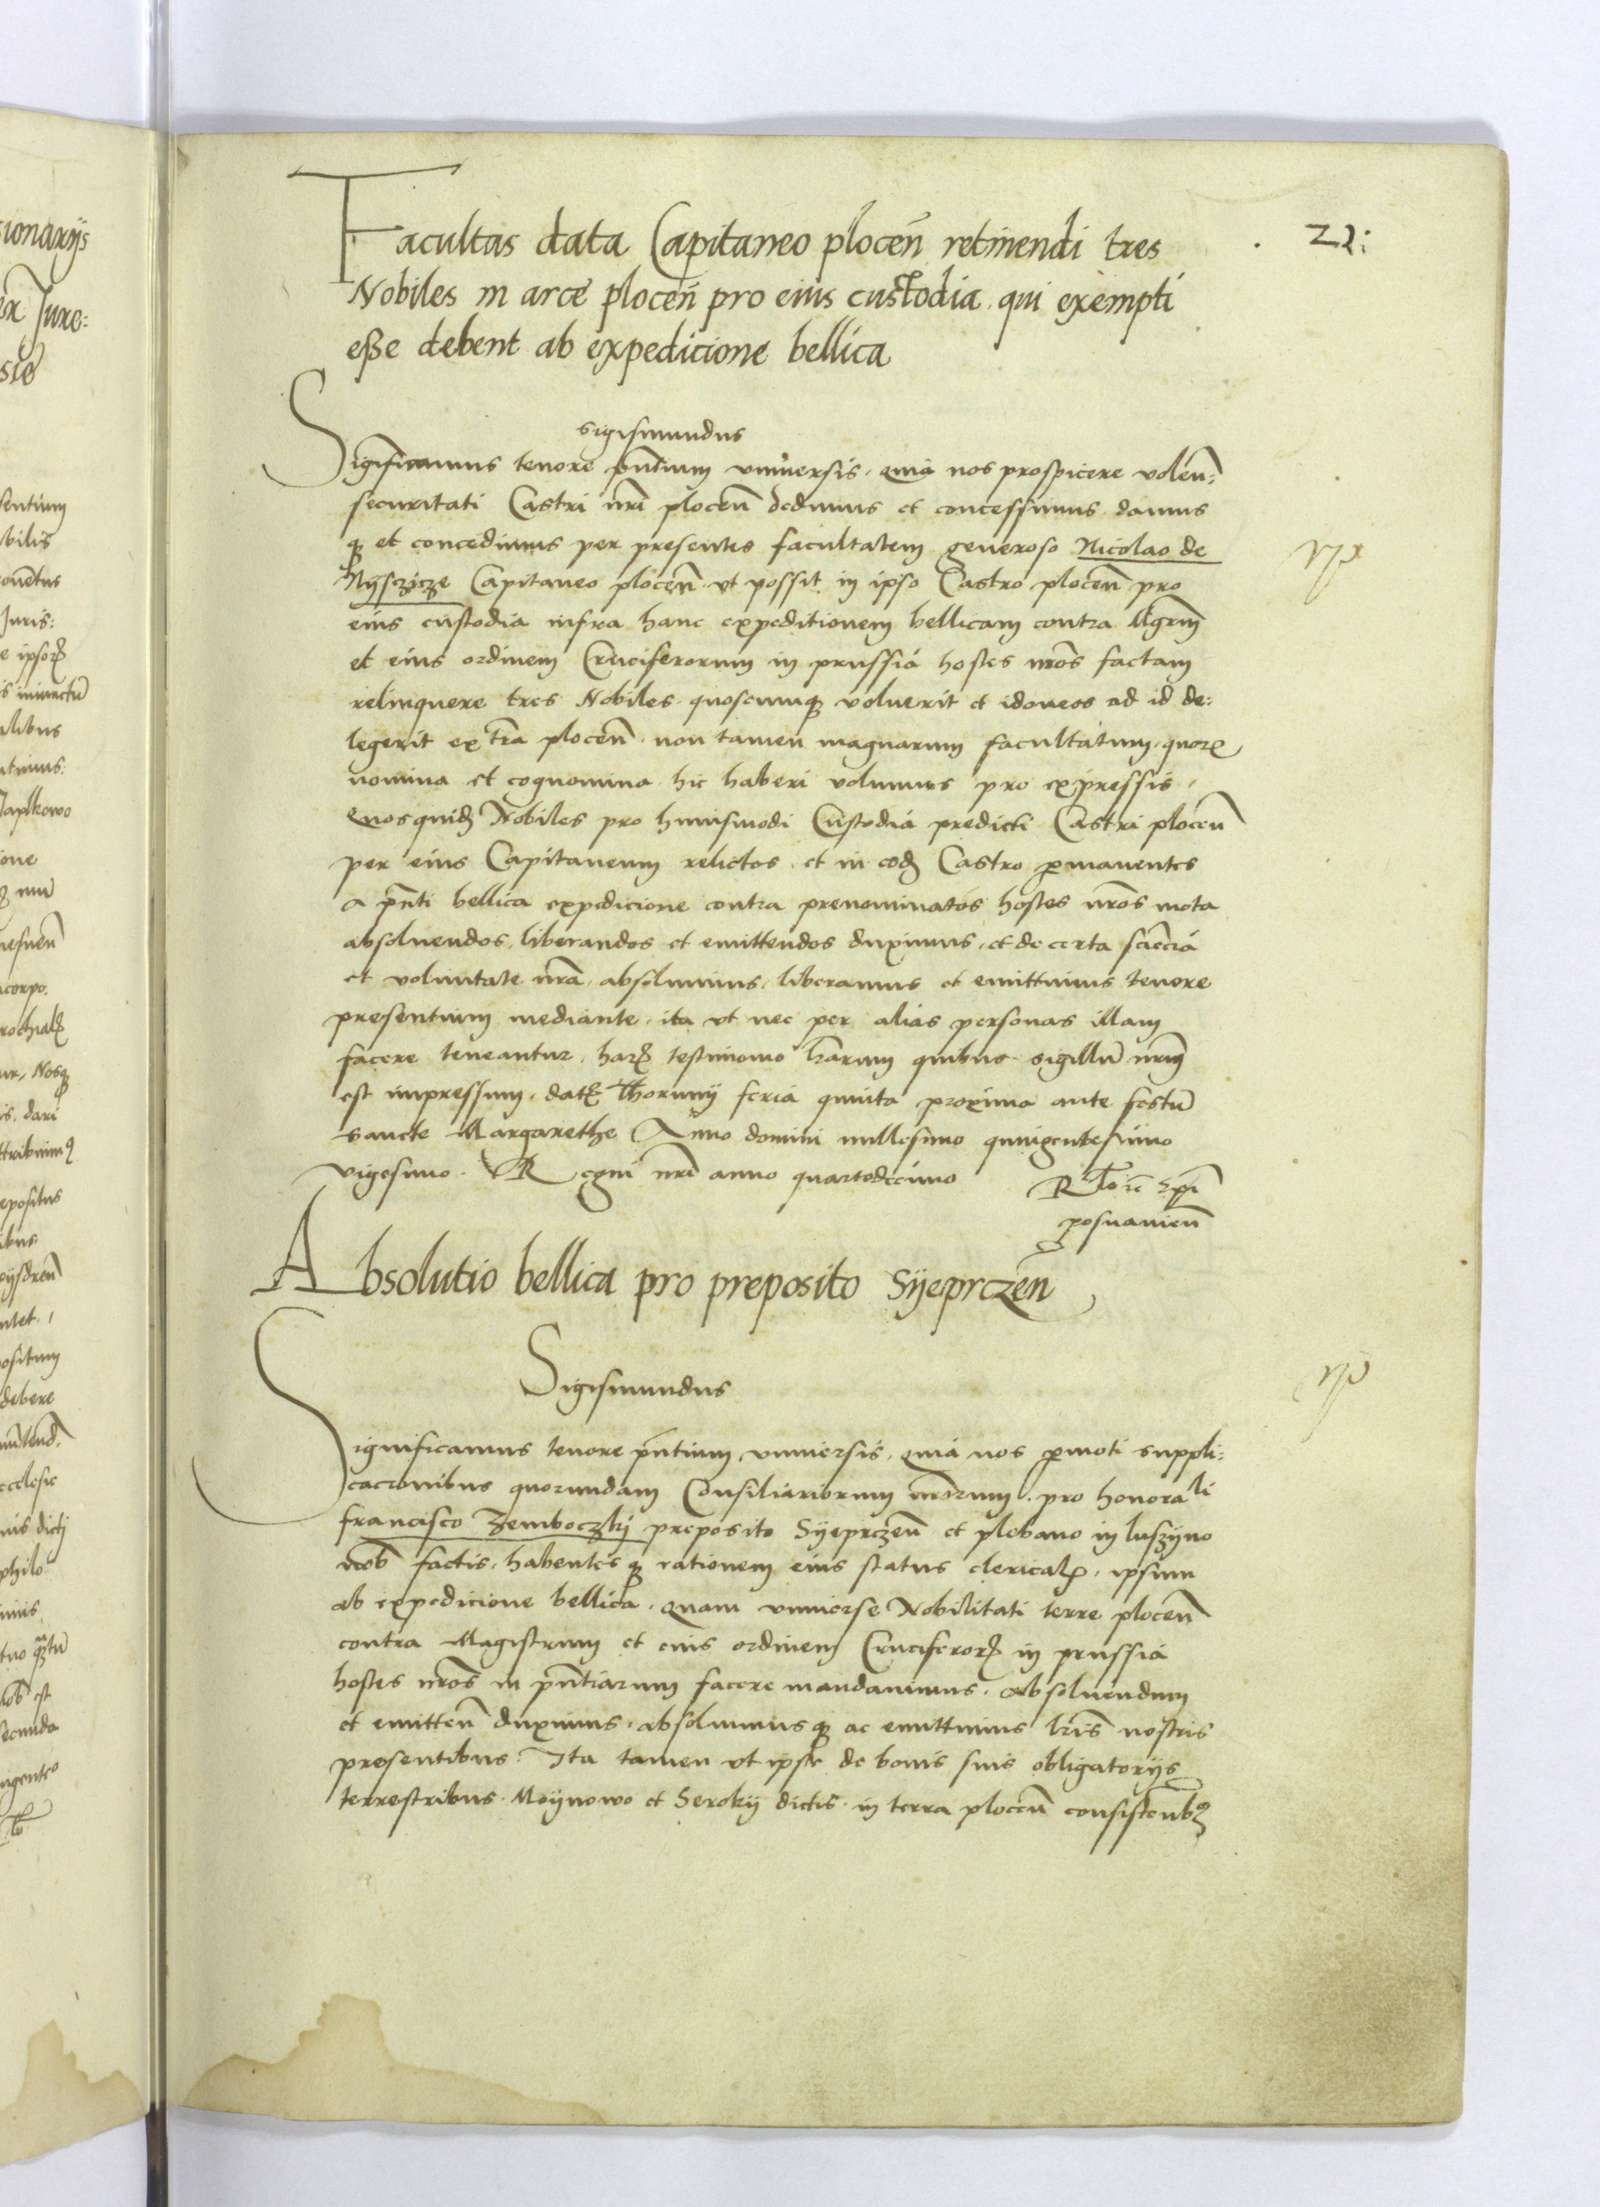 Facultas data Capitaneo plocen̄ retinendi tres
22:
Nobiles in arce plocen̄ pro eius custodia qui exempti
eße debent ab expedicione bellica
Sigismundus
Significamus tenore pn̄tium vniuersis, quia nos prospicere volen̄:
securitati Castri nr̄i plocen̄ dedimus et concessimus damus
qꝫ et concedimus per presentes facultatem generoso Nicolao de
Nijsczicze Capitaneo plocen̄ vt possit in ipso Castro plocen̄ pro
eius custodia infra hanc expeditionem bellicam contra Mgr̄m
et eius ordinem Cruciferorum in prussia hostes nr̄os factam
relinquere tres Nobiles quoscumqꝫ voluerit et idoneos ad id de:
legerit ex tr̄a plocen̄ non tamen magnarum facultatum, quorꝫ
nomina et cognomina hic haberi volumus pro expressis,
Quosquidꝫ Nobiles pro huiusmodi Custodia predicti Castri plocen̄
per eius Capitaneum relictos et in eodꝫ Castro ꝑmanentes
a pn̄ti bellica expedicione contra prenominatos hostes nr̄os mota
absoluendos, liberandos et emittendos duximus, et de certa scien̄cia
et voluntate nr̄a, absoluimus, liberamus et emittimus tenore
presentium mediante, ita vt nec per alias personas illam
facere teneantur, harꝫ testimonio l̄rarum quibus sigillū nr̄m
est impressum, datꝫ Thorunij feria quinta proxima ante festū
sancte Margarethe Anno domini millesimo quingentesimo
vigesimo. Regni nr̄i anno quartodecimo
posnanien̄
Absolutio bellica pro preposito Syeprczen̄
Sigismundus
Significamus tenore pn̄tium vniuersis, quia nos ꝑmoti suppli:
cacionibus quorundam Consiliariorum nr̄orum, pro honorali
francisco Zemboczkij preposito Syeprczen̄ et plebano in luszyno
nob̄ factis, habentes qꝫ rationem eius status clericalꝫ, ipsum
ab expedicione bellica, quam vniuerse Nobilitati terre plocen̄
contra Magistrum et eius ordinem Cruciferorꝫ in prussia
hostes nr̄os in pn̄tiarum facere mandauimus, absoluendum
et emitten̄ duximus, absoluimus qꝫ ac emittimus l̄ris nostris
presentibus. Ita tamen vt ipse de bonis suis obligatorijs
terrestribus Moijnowo et Serokij dictis in terra plocen̄ consistenb9